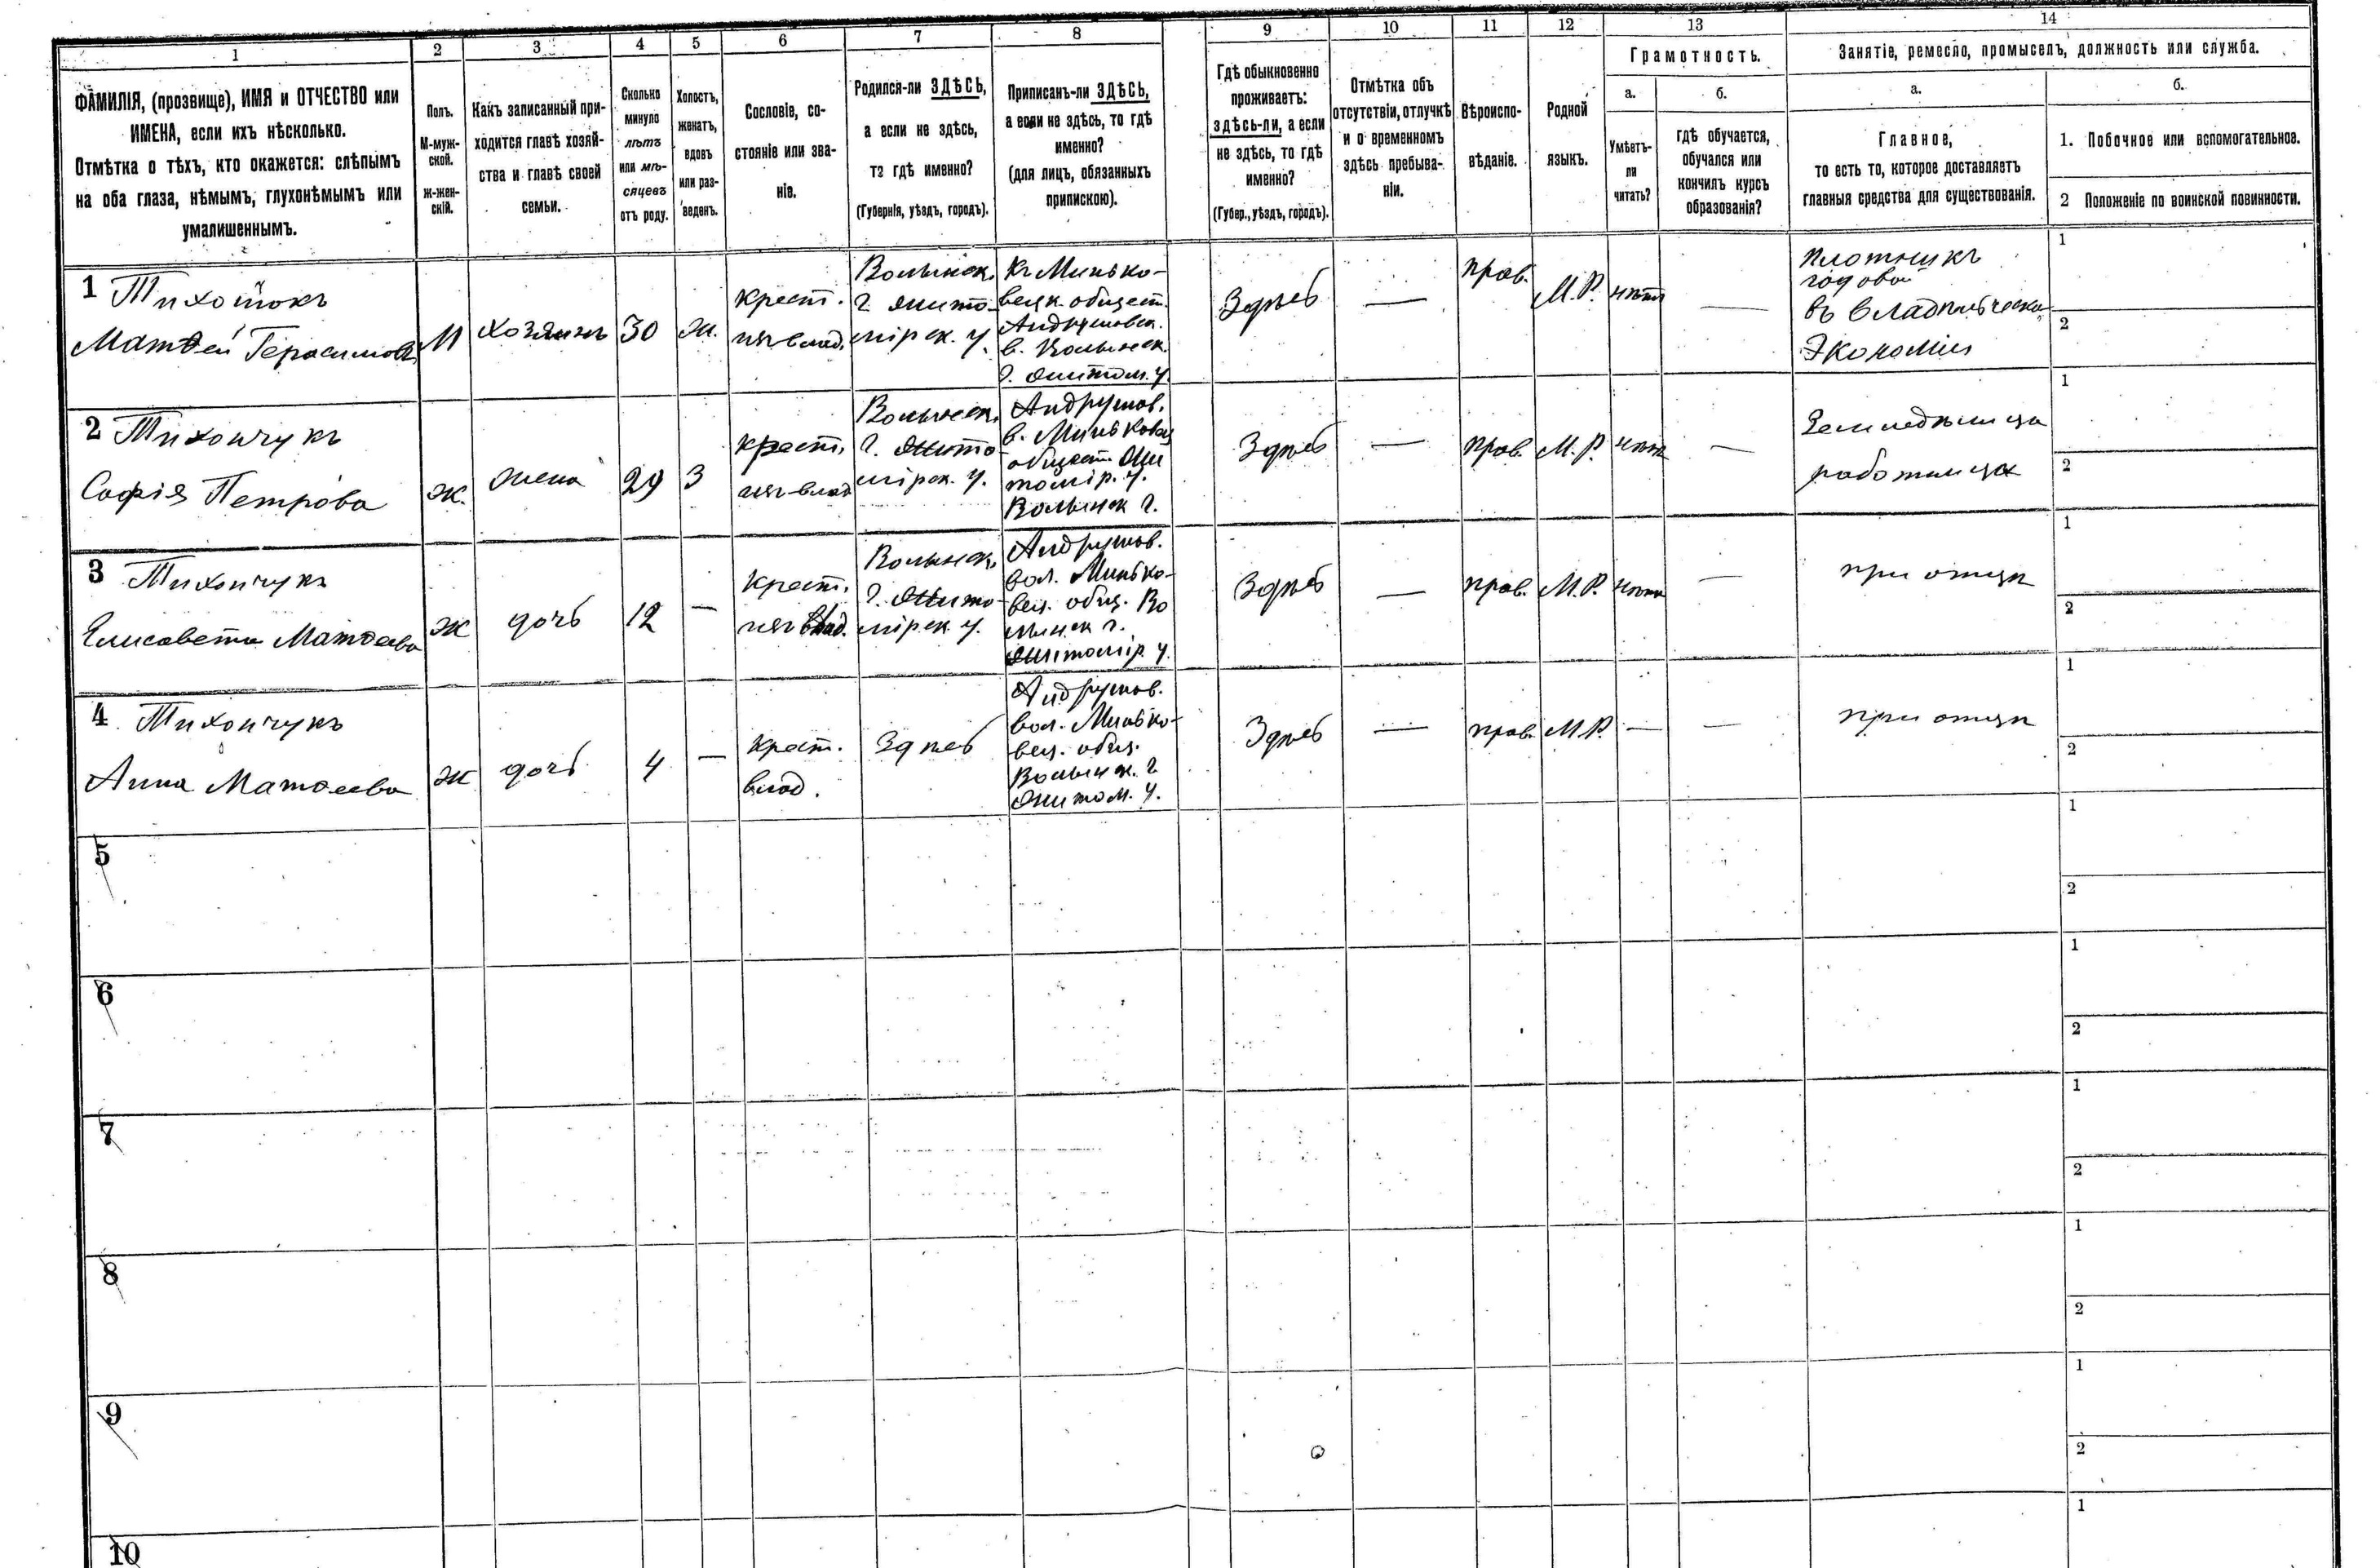 1 2 3 4 5 6 7 8 9 10 11 12 13 14
ФАМИЛІЯ, (прозвище), ИМЯ и ОТЧЕСТВО или
ИМЕНА, если ихъ нѣсколько.
Отмѣтка о тѣхъ, кто окажется: слѣпымъ
на оба глаза, нѣмымъ, глухонѣмымъ или
умалишеннымъ.
Полъ.
М-муж-
ской.
ж-жен-
скій.
Какъ записанный при-
ходится главѣ хозяй-
ства и главѣ своей
семьи.
Сколько
минуло
лѣтъ
или мѣ-
сяцевъ
отъ роду.
Холостъ,
женатъ,
вдовъ
или раз-
веденъ.
Сословіе, со-
стояніе или зва-
ніе.
Родился-ли ЗДѢСЬ,
а если не здѣсь,
то гдѣ именно?
(Губернія, уѣздъ, городъ).
Приписанъ-ли ЗДѢСЬ,
а если не здѣсь, то гдѣ
именно?
(для лицъ, обязанныхъ
припискою).
Гдѣ обыкновенно
проживаетъ:
здѣсь-ли, а если
не здѣсь, то гдѣ
именно?
(Губер., уѣздъ, городъ).
Отмѣтка объ
отсутствіи, отлучкѣ
и о временномъ
здѣсь пребыва-
ніи.
Вѣроиспо-
вѣданіе.
Родной
языкъ.
Грамотность.
а.
Умѣетъ-
ли
читать?
б.
гдѣ обучается,
обучался или
кончилъ курсъ
образованія?
Занятіе, ремесло, промыселъ, должность или служба.
а.
Главное,
то есть то, которое доставляетъ
главныя средства для существованія.
б.
1. Побочное или вспомогательное.
2 Положеніе по воинской повинности.
1
Матвей Герасимовъ
М
хозяинъ
30
ж.
крест.
изъ влад.
Волынск.
г. Жито-
мірск. у.
Къ Минько-
вецк. общест.
Андрушовск.
в. Волынск.
г. Житом. у.
Здѣсь
—
прав.
М.Р.
нѣтъ
—
плотникъ
годовой
въ владѣльческой
Экономіи
1
2
2 Тихончукъ
Софія Петрова
ж.
жена
29
З
крест.
изъ влад
Волынск.
г. Жито-
мірск. у.
Андрушов.
в. Миньковец
общест. Жи
томір. у.
Волынск г.
Здѣсь
—
прав.
М.Р.
нѣтъ
—
Земледѣлица
работница
1
2
3 Тихончукъ
Елисавета Матѳеева
ж
дочь
12
—
крест.
изъ влад.
Волынск.
г. Жито-
мірск у.
Андрушов.
вол. Минько-
вец. общ. Во
лынск г.
Житомір. у.
Здѣсь
—
прав.
М.Р.
нѣтъ
—
при отцѣ
1
2
4 Тихончукъ
Анна Матѳеева
ж
дочь
4
—
крест.
влад.
Здѣсь
Андрушов.
вол. Минько-
вец. общ.
Волынск. г.
Житом. у.
Здѣсь
—
прав.
М.Р.
—
—
при отцѣ
1
2
5
1
2
6
1
2
7
1
2
8
1
2
9
1
2
10
1